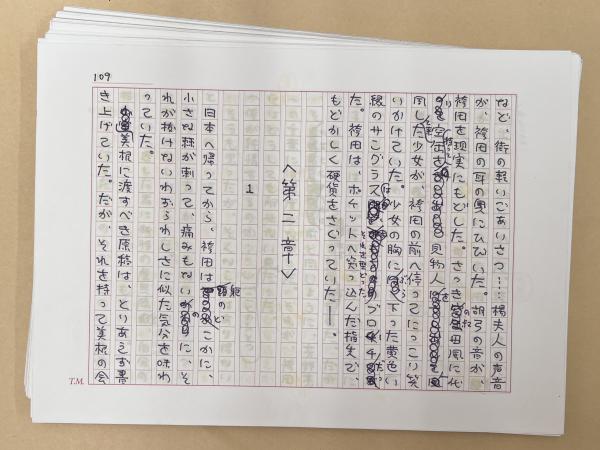 109
など、街の軽いごあいさつ……楊夫人の声音
が、袴田の耳の奥にひびいた。胡弓の音が、
袴田を現実にもどした。さっき
見物人
した少女が、袴田の前へ停ってにっこり笑
いかけていた。少女の胸に下った黄色い
縁のサングラス
のブローチ
た。袴田は、ポケットへ突っ込んだ指先で、
もどかしく硬貨をさぐっていた──。
〈第二章〉
1
日本へ帰ってから、袴田は 躯のどこかに、
小さな棘が刺って、痛みもないのに、そ
れが抜けないわずらわしさに似た気分を味わ
っていた。
美根に渡すべき原稿は、とりあえず書
き上げていた。だが、それを持って美根の会
T.M.